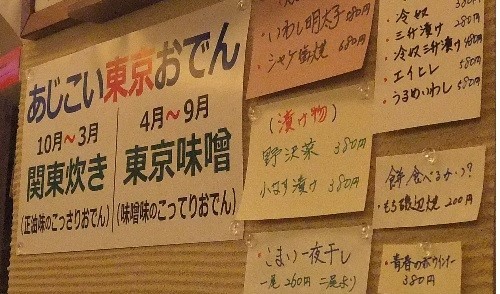 あじこい東京おでん
10月〜3月
関東炊き
(正油味のこっさりおでん)
4月〜9月
東京味噌
(味噌味のこってりおでん)
・いわし明太子
・シャケ 焼 680円
(漬け物)
野沢菜 380円
小なす漬け 380円
・こまい一夜干し
一尾 260円 二尾より
・冷奴 380円
・三升漬け 280円
・冷奴三升漬け 480円
・エイヒレ 580円
・うるめいわし 580円
餅、食べるかい?
・もち磯辺焼 200円
・青春の赤ウインナー
380円